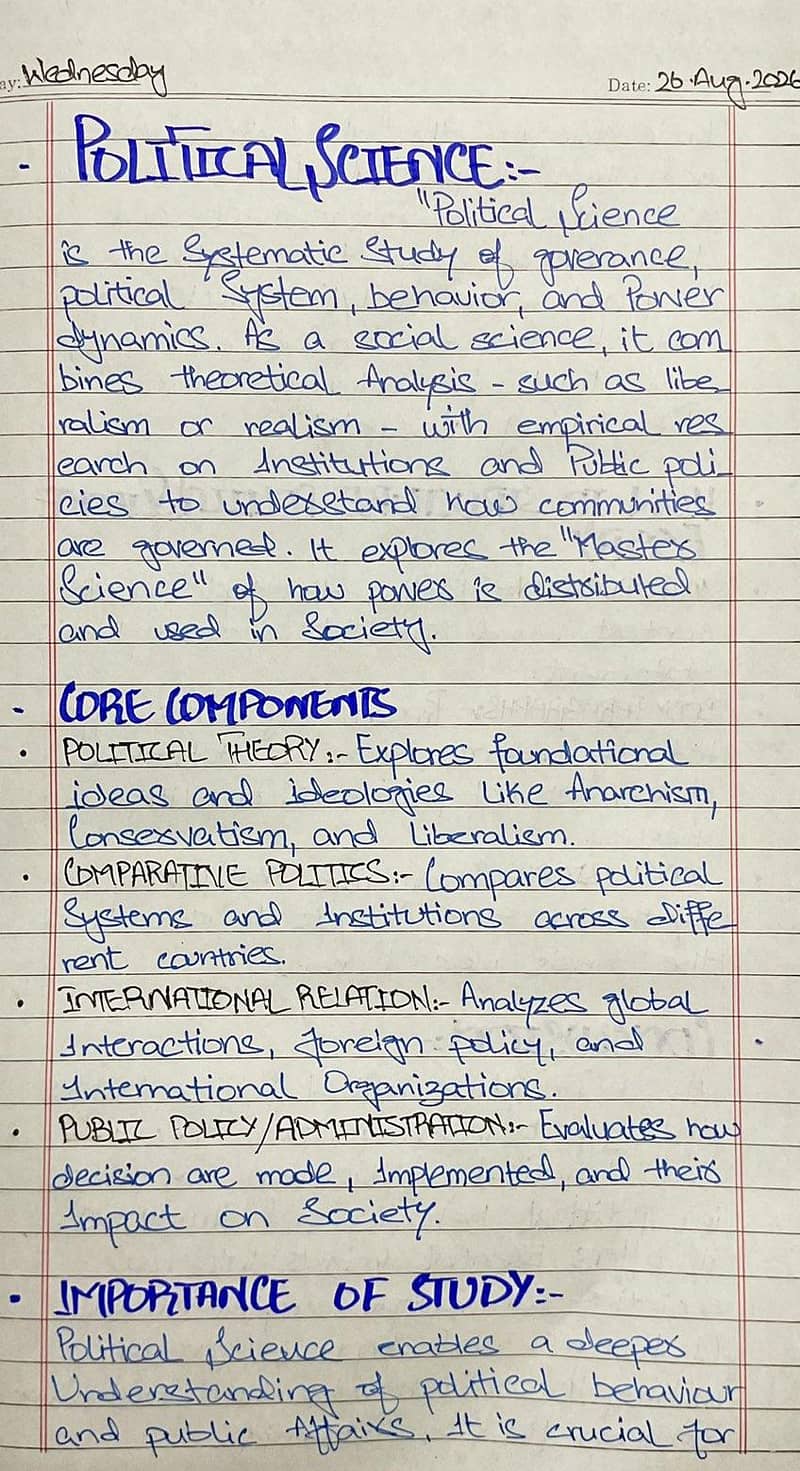 ay: Wednesday
Date: 26.Aug.2026
- POLITICAL SCIENCE:-
"Political Science
is the Systematic Study of goverance,
political System, behavior, and Power
dynamics. As a social science, it com
bines theoretical Analysis - such as libe
ralism or realism - with empirical res
earch on Institutions and Public poli
cies to understand how communities
are governed. It explores the "Master
Science" of how power is distributed
and used in Society.
- CORE COMPONENTS
• POLITICAL THEORY:- Explores foundational
ideas and ideologies like Anarchism,
Conservatism, and Liberalism.
• COMPARATIVE POLITICS:- Compares political
Systems and Institutions across diffe
rent countries.
• INTERNATIONAL RELATION:- Analyzes global
Interactions, foreign policy, and
International Organizations.
• PUBLIC POLICY/ADMINISTRATION:- Evaluates how
decision are made, Implemented, and their
Impact on Society.
• IMPORTANCE OF STUDY:-
Political Science enables a deeper
Understanding of political behaviour
and public Affairs. It is crucial for